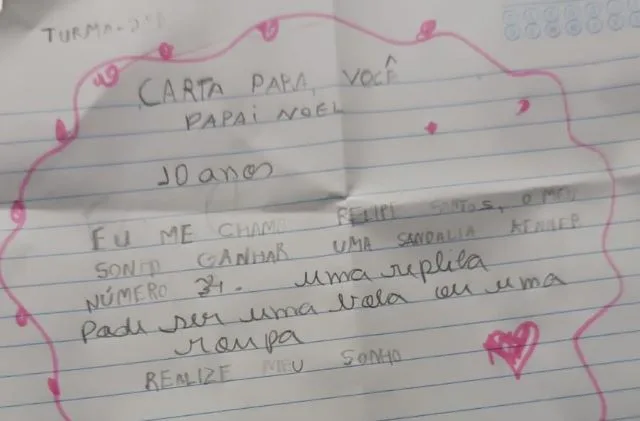 TURMA-
CARTA PARA VOCÊ
PAPAI NOEL
10 anos
EU ME CHAMO FELIPE SANTOS, O MEU
SONHO GANHAR UMA SANDALIA KENNER
NÚMERO 34. uma replica
Pode ser uma bola ou uma
roupa
REALIZE MEU SONHO